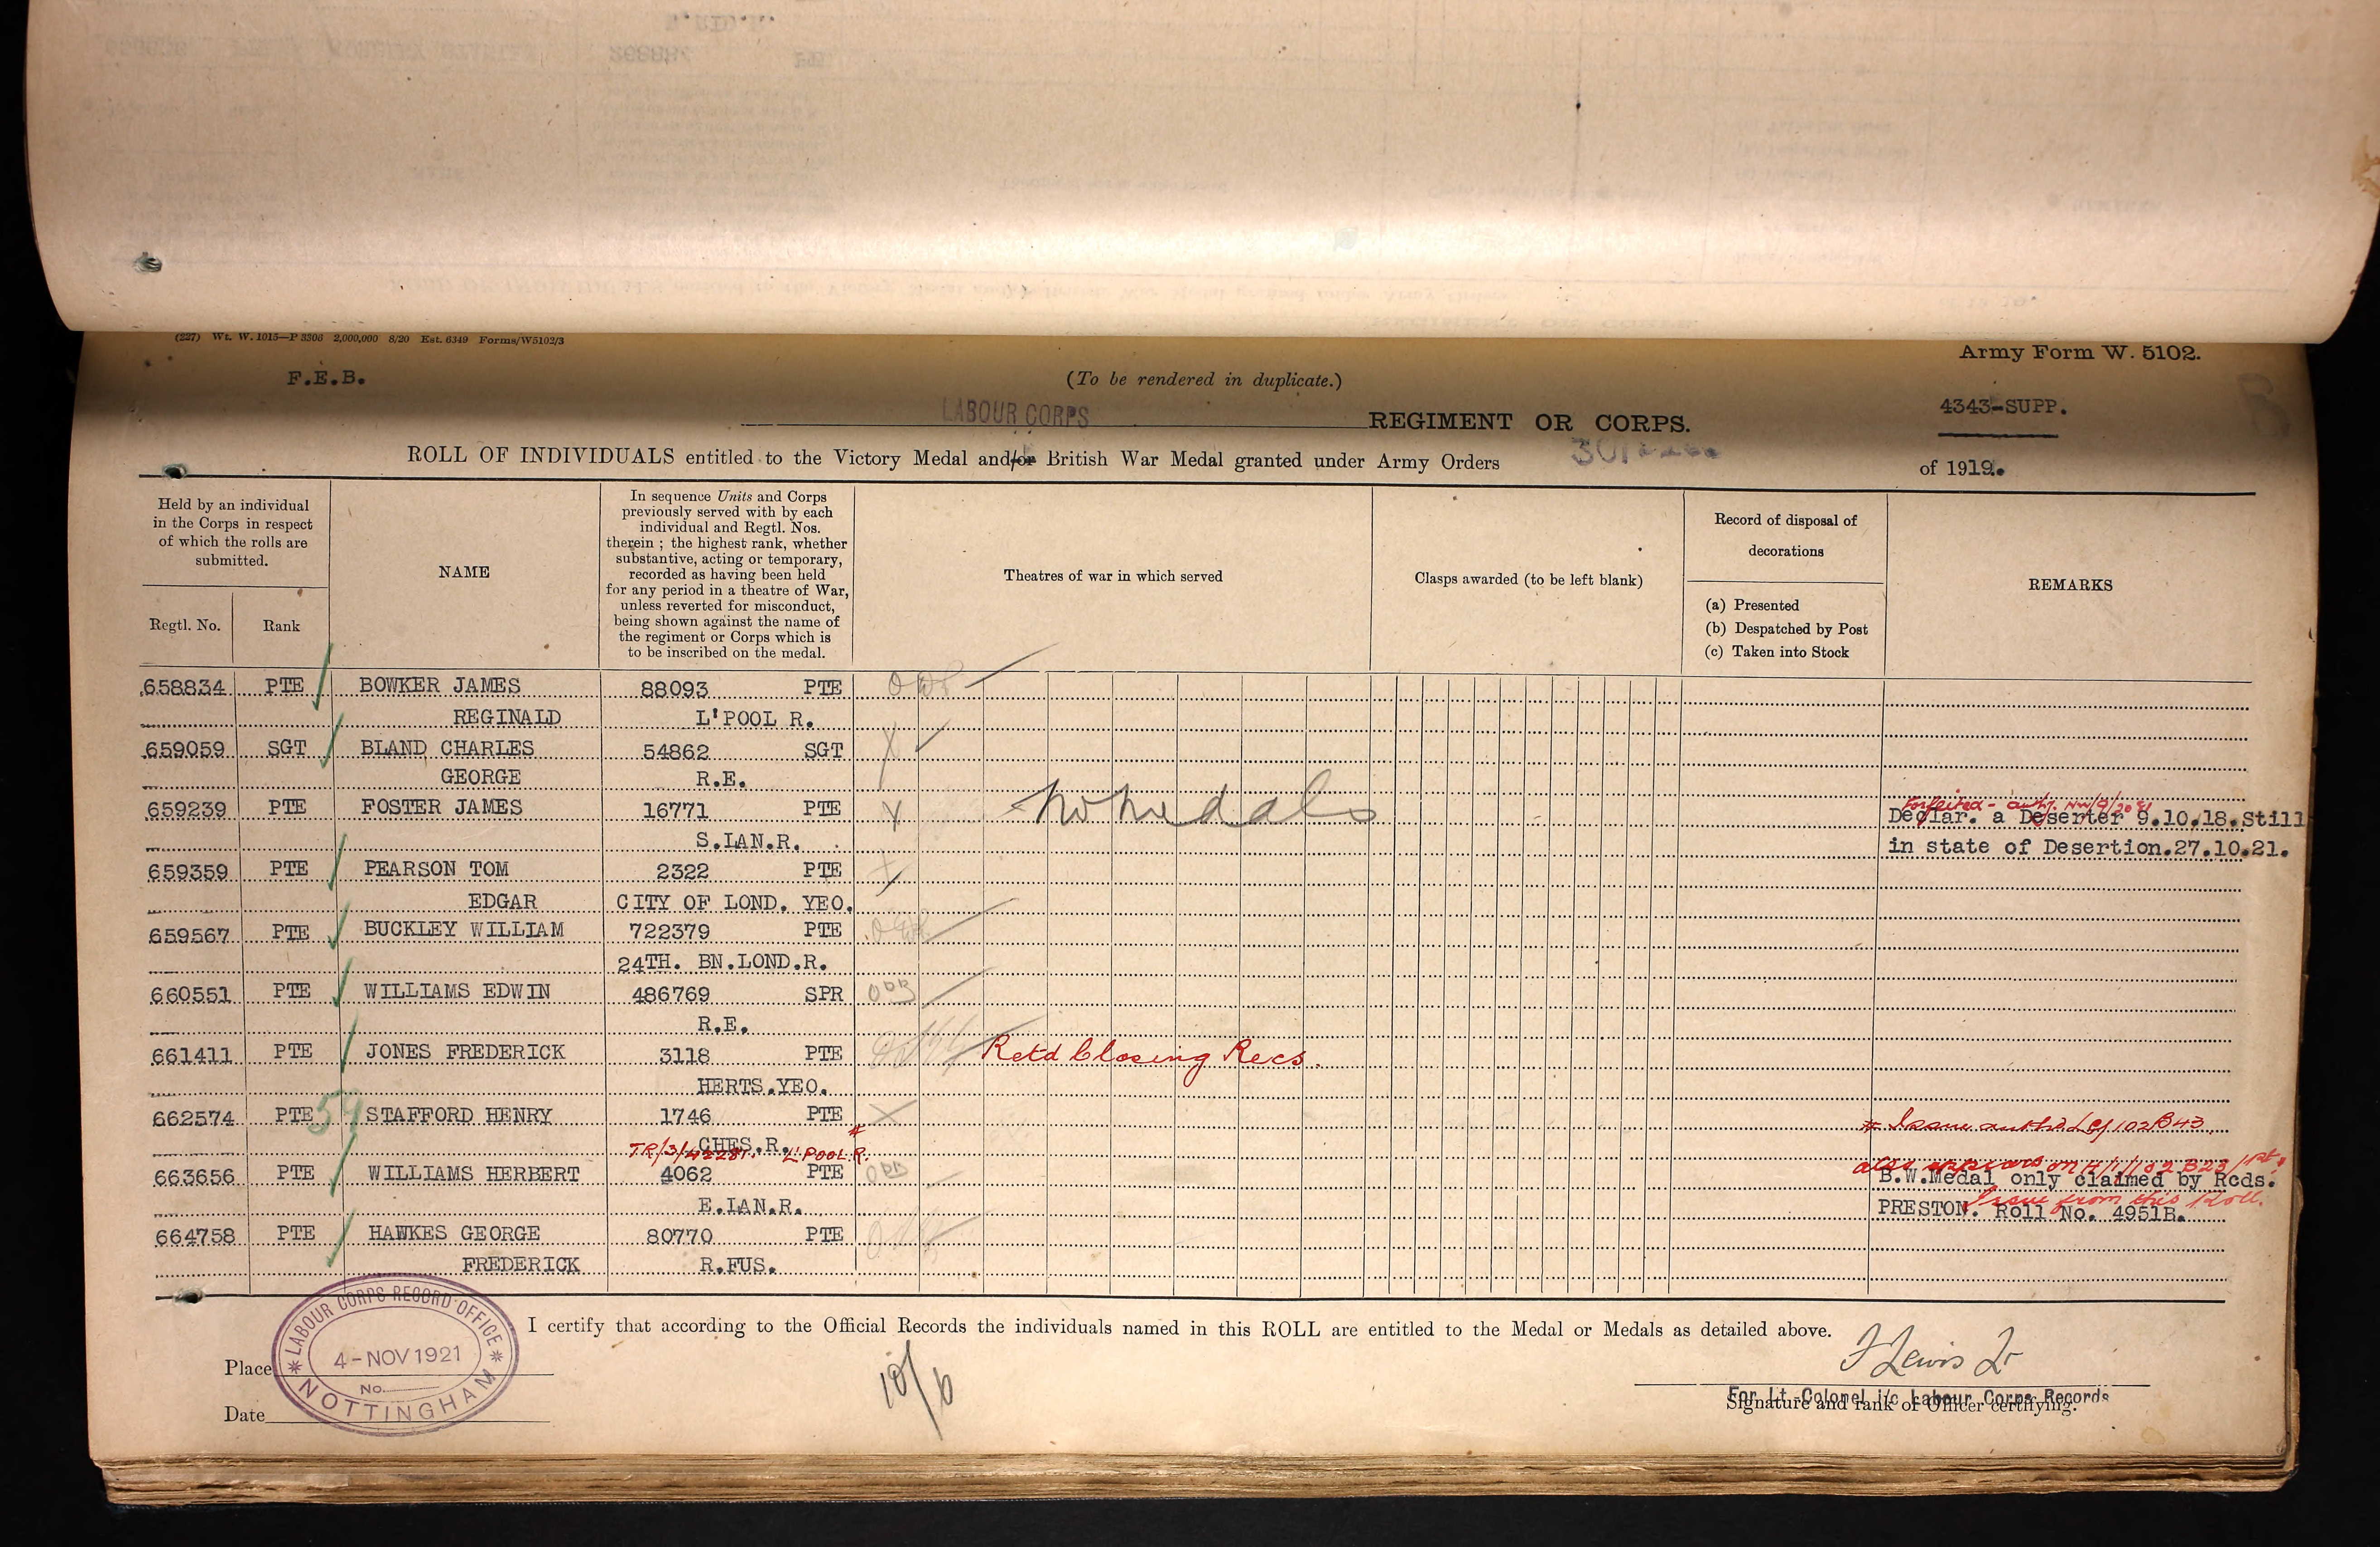 (227) Wt. W. 1015—P 3306 2,000,000 8/20 Est. 6349 Forms/W5102/3
Army Form W. 5102.
F.E.B.
(To be rendered in duplicate.)
4343-SUPP.
LABOUR CORPS REGIMENT OR CORPS.
ROLL OF INDIVIDUALS entitled to the Victory Medal and/or British War Medal granted under Army Orders of 1919.
Held by an individual
in the Corps in respect
of which the rolls are
submitted.
Regtl. No.
Rank
NAME
In sequence Units and Corps
previously served with by each
individual and Regtl. Nos.
therein ; the highest rank, whether
substantive, acting or temporary,
recorded as having been held
for any period in a theatre of War,
unless reverted for misconduct,
being shown against the name of
the regiment or Corps which is
to be inscribed on the medal.
Theatres of war in which served
Clasps awarded (to be left blank)
Record of disposal of
decorations
(a) Presented
(b) Despatched by Post
(c) Taken into Stock
REMARKS
658834 PTE BOWKER JAMES 88093 PTE
REGINALD L'POOL R.
659059 SGT BLAND CHARLES 54862 SGT X
GEORGE R.E.
Forfeited - authy.
659239 PTE FOSTER JAMES 16771 PTE X No Medals Declar. a Deserter 9.10.18. Still
S.LAN.R. in state of Desertion.27.10.21.
659359 PTE PEARSON TOM 2322 PTE X
EDGAR CITY OF LOND. YEO.
659567 PTE BUCKLEY WILLIAM 722379 PTE
24TH. BN.LOND.R.
660551 PTE WILLIAMS EDWIN 486769 SPR
R.E.
661411 PTE JONES FREDERICK 3118 PTE Retd Closing Recs.
HERTS.YEO.
662574 PTE STAFFORD HENRY 1746 PTE X
CHES.R.
TR/3/42281. L'POOL.R.
also appears on
663656 PTE WILLIAMS HERBERT 4062 PTE B.W.Medal only claimed by Rcds.
Issue from this Roll.
E.LAN.R. PRESTON. Roll No. 4951B.
664758 PTE HAWKES GEORGE 80770 PTE
FREDERICK R.FUS.
I certify that according to the Official Records the individuals named in this ROLL are entitled to the Medal or Medals as detailed above.
LABOUR CORPS RECORD OFFICE
4-NOV 1921
No.
NOTTINGHAM
Place
Date
10/6
J Lewis Lt
For Lt.-Colonel i/c Labour Corps Records
Signature and rank of Officer certifying.